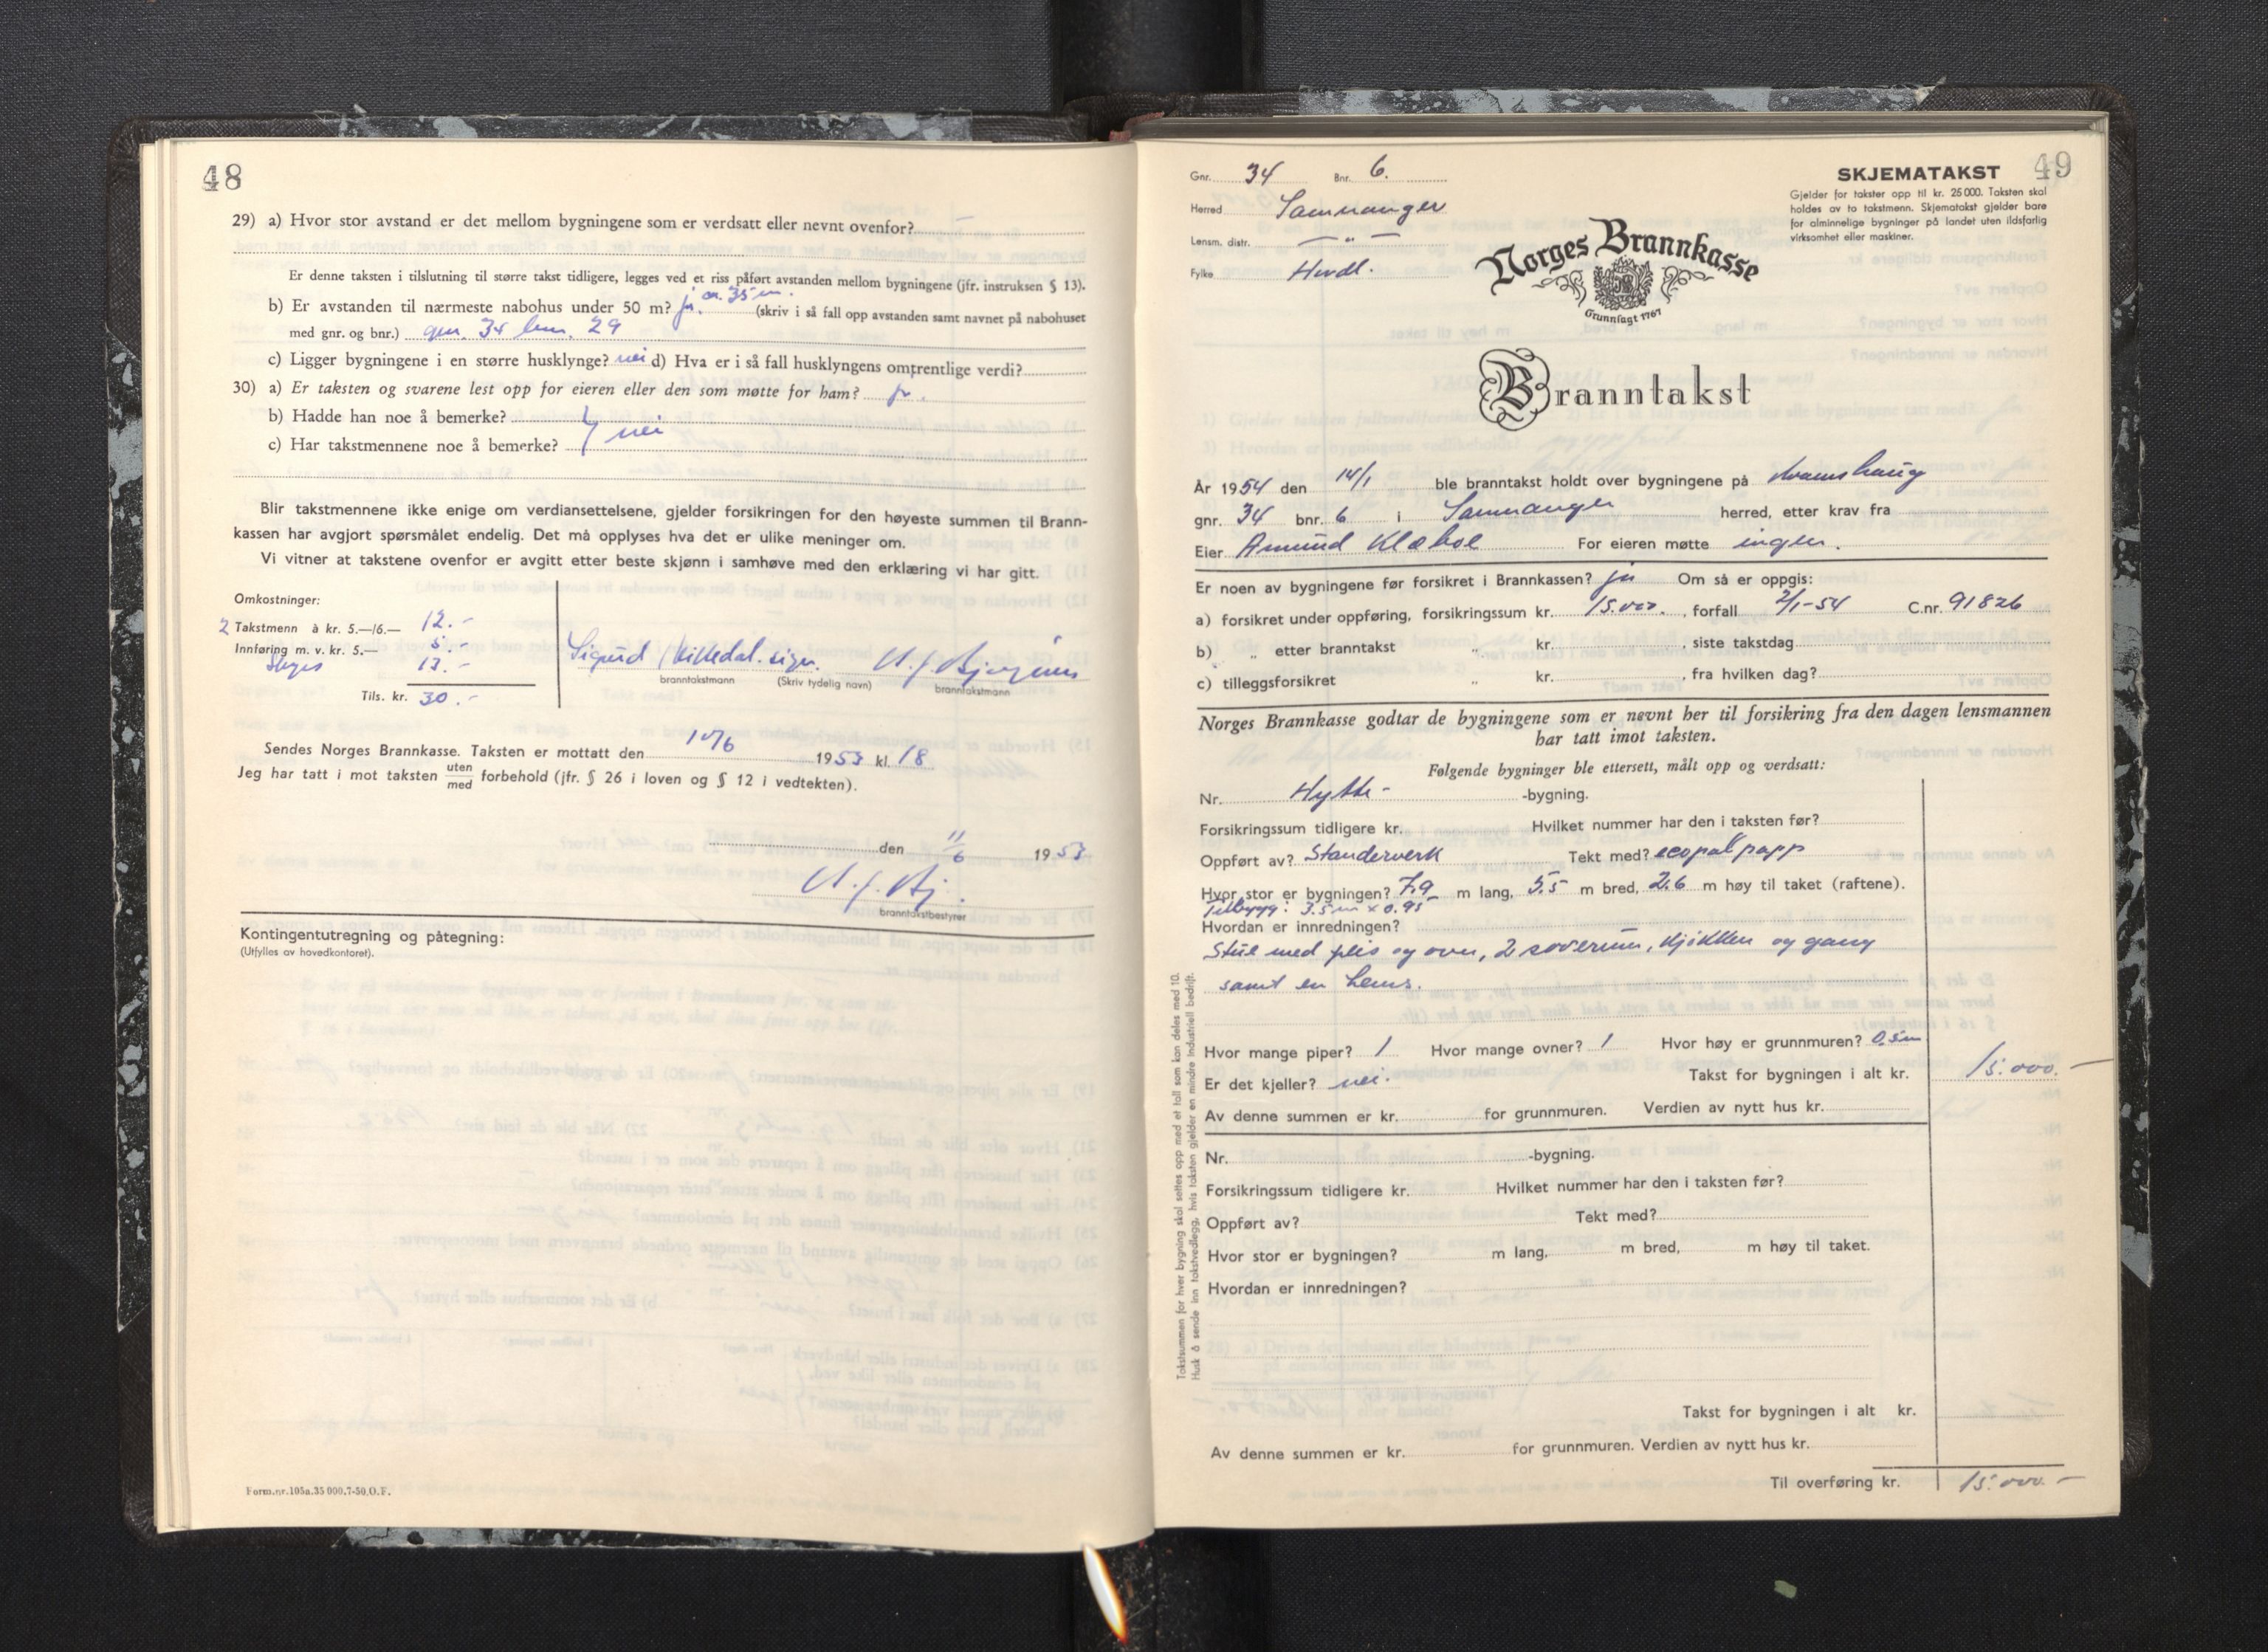 48
29) a) Hvor stor avstand er det mellom bygningene som er verdsatt eller nevnt ovenfor?
Er denne taksten i tilslutning til større takst tidligere, legges ved et riss påført avstanden mellom bygningene (jfr. instruksen § 13).
b) Er avstanden til nærmeste nabohus under 50 m? ja. ca. 35 m. (skriv i så fall opp avstanden samt navnet på nabohuset
med gnr. og bnr.) gnr. 34 bnr. 29
c) Ligger bygningene i en større husklynge? nei d) Hva er i så fall husklyngens omtrentlige verdi?
30) a) Er taksten og svarene lest opp for eieren eller den som møtte for ham? ja.
b) Hadde han noe å bemerke?
c) Har takstmennene noe å bemerke? } nei
Blir takstmennene ikke enige om verdiansettelsene, gjelder forsikringen for den høyeste summen til Brann-
kassen har avgjort spørsmålet endelig. Det må opplyses hva det er ulike meninger om.
Vi vitner at takstene ovenfor er avgitt etter beste skjønn i samhøve med den erklæring vi har gitt.
Omkostninger:
2 Takstmenn à kr. 5.—/6.— 12.-
Innføring m. v. kr. 5.— 5.-
Skyss 13.-
Tils. kr. 30.-
Sigurd
sign.
branntakstmann (Skriv tydelig navn) branntakstmann
Sendes Norges Brannkasse. Taksten er mottatt den 10/6 1953 kl. 18
Jeg har tatt i mot taksten uten/med forbehold (jfr. § 26 i loven og § 12 i vedtekten).
den 11/6 1953
branntakstbestyrer
Kontingentutregning og påtegning:
(Utfylles av hovedkontoret).
Form.nr.105a.35 000.7-50.O.F.
49
Gnr. 34 Bnr. 6.
Herred Samnanger
Lensm. distr. — " —
Fylke Hordl.
SKJEMATAKST
Gjelder for takster opp til kr. 25 000. Taksten skal
holdes av to takstmenn. Skjematakst gjelder bare
for alminnelige bygninger på landet uten ildsfarlig
virksomhet eller maskiner.
Norges Brannkasse
Grunnlagt 1767
Branntakst
År 1954 den 14/1 ble branntakst holdt over bygningene på
gnr. 34 bnr. 6 i Samnanger herred, etter krav fra
Eier Amund Klæboe For eieren møtte ingen.
Er noen av bygningene før forsikret i Brannkassen? ja Om så er oppgis:
a) forsikret under oppføring, forsikringssum kr. 15.000. , forfall 2/1-54 C.nr. 91826
b) „ etter branntakst „ kr. , siste takstdag
c) tilleggsforsikret „ kr. , fra hvilken dag?
Norges Brannkasse godtar de bygningene som er nevnt her til forsikring fra den dagen lensmannen
har tatt imot taksten.
Følgende bygninger ble ettersett, målt opp og verdsatt:
Nr. Hytte- -bygning.
Forsikringssum tidligere kr. Hvilket nummer har den i taksten før?
Oppført av? Standerverk Tekt med? papp
Hvor stor er bygningen? 7.9 m lang, 5.5 m bred, 2.6 m høy til taket (raftene).
Tilbygg: 3.5 m x 0.95
Hvordan er innredningen?
Stue med peis og ovn, 2 soverum, kjøkken og gang
samt en hems.
Hvor mange piper? 1 Hvor mange ovner? 1 Hvor høy er grunnmuren? 0,5m
Er det kjeller? nei. Takst for bygningen i alt kr. 15.000.-
Av denne summen er kr. for grunnmuren. Verdien av nytt hus kr.
Nr. -bygning.
Forsikringssum tidligere kr. Hvilket nummer har den i taksten før?
Oppført av? Tekt med?
Hvor stor er bygningen? m lang, m bred, m høy til taket.
Hvordan er innredningen?
Takst for bygningen i alt kr.
Av denne summen er kr. for grunnmuren. Verdien av nytt hus kr.
Til overføring kr. 15.000.-
Takstsummen for hver bygning skal settes opp med et tall som kan deles med 10.
Husk å sende inn takstvedlegg, hvis taksten gjelder en mindre industriell bedrift.